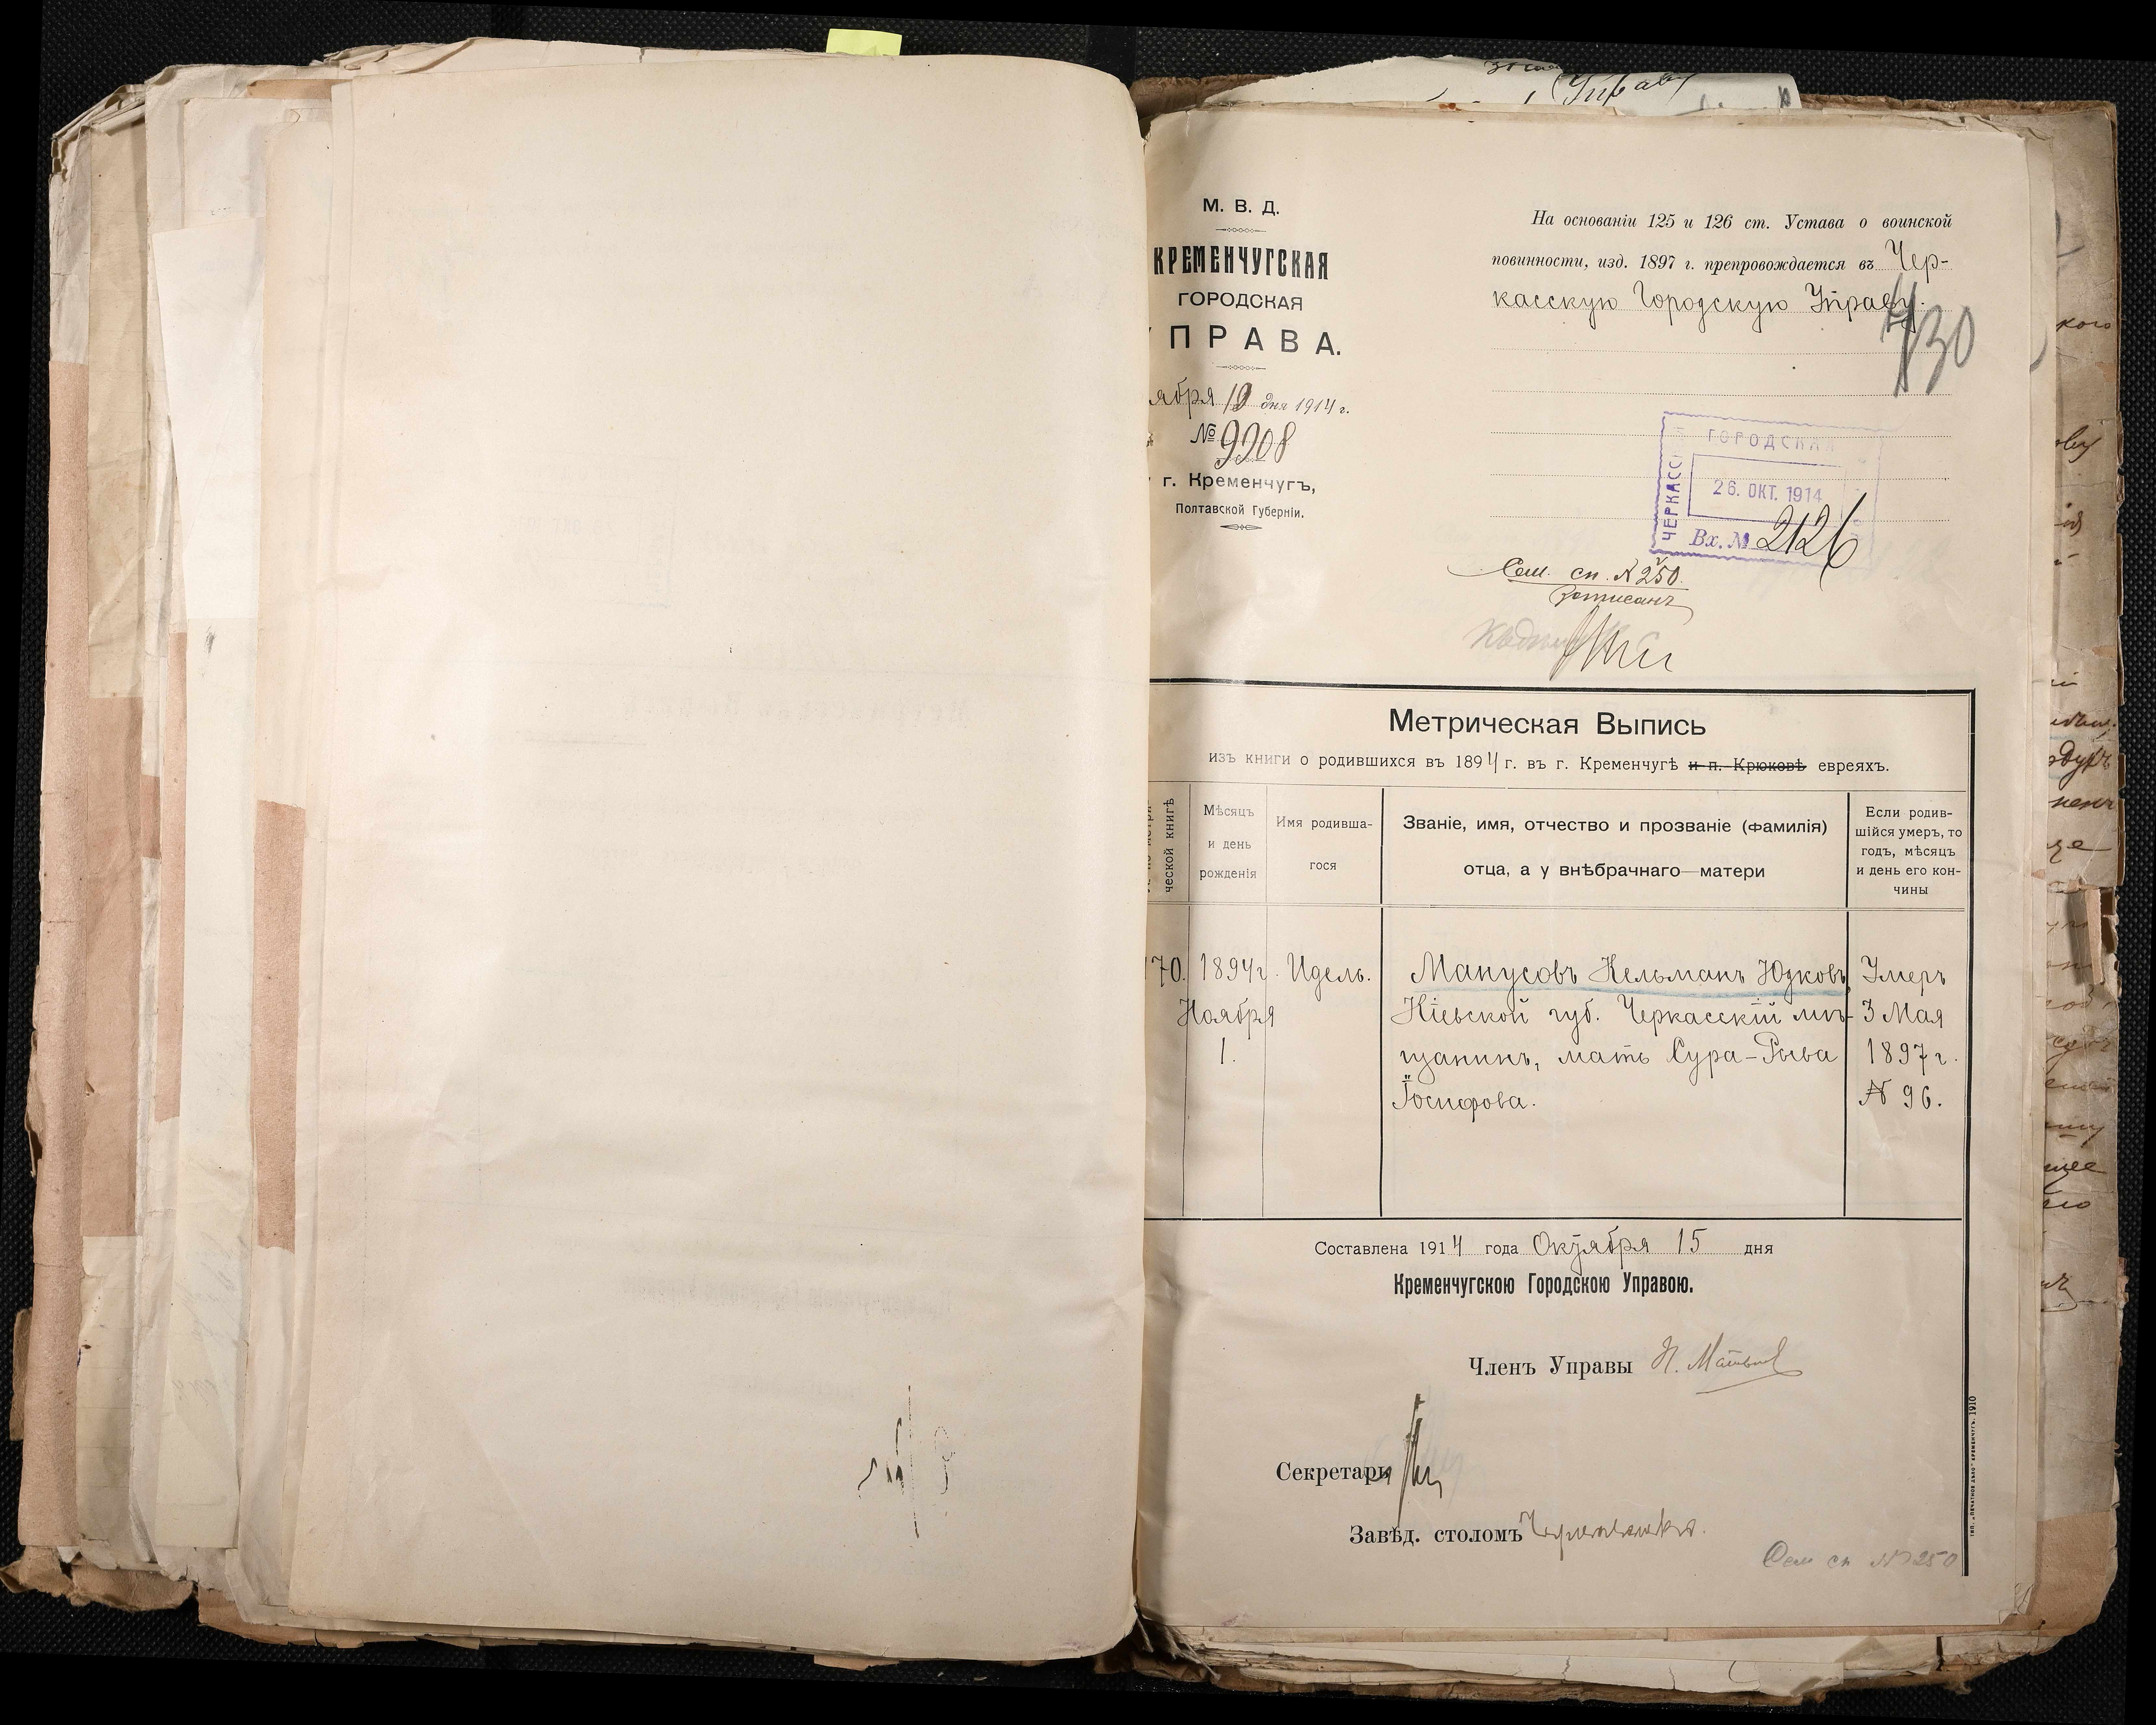 М. В. Д.
КРЕМЕНЧУГСКАЯ
ГОРОДСКАЯ
УПРАВА.
ября 19 дня 1914 г.
№ 9908
г. Кременчугъ,
Полтавской Губерніи.
На основаніи 125 и 126 ст. Устава о воинской
повинности, изд. 1897 г. препровождается въ Чер-
касскую Городскую Управу.
430
ГОРОДСКАЯ
ЧЕРКАСС
26. ОКТ. 1914
Вх. № 2126
Сем. сп. № 250.
записанъ
Метрическая Выпись
изъ книги о родившихся въ 1894 г. въ г. Кременчугѣ и п. Крюковѣ евреяхъ.
ческой книгѣ
Мѣсяцъ
и день
рожденія
Имя родивша-
гося
Званіе, имя, отчество и прозваніе (фамилія)
отца, а у внѣбрачнаго—матери
Если родив-
шійся умеръ, то
годъ, мѣсяцъ
и день его кон-
чины
70.
1894 г.
Ноября
1.
Идель.
Манусовъ Кельманъ Юдковъ,
Кіевской губ. Черкасскій мѣ-
щанинъ, мать Сура-Рыва
Іосифова.
Умеръ
3 Мая
1897 г.
№ 96.
Составлена 1914 года Октября 15 дня
Кременчугскою Городскою Управою.
Членъ Управы
Секретарь
Завѣд. столомъ
Сем сп № 250
ТИП. „ПЕЧАТНОЕ ДѢЛО" КРЕМЕНЧУГЪ. 1910